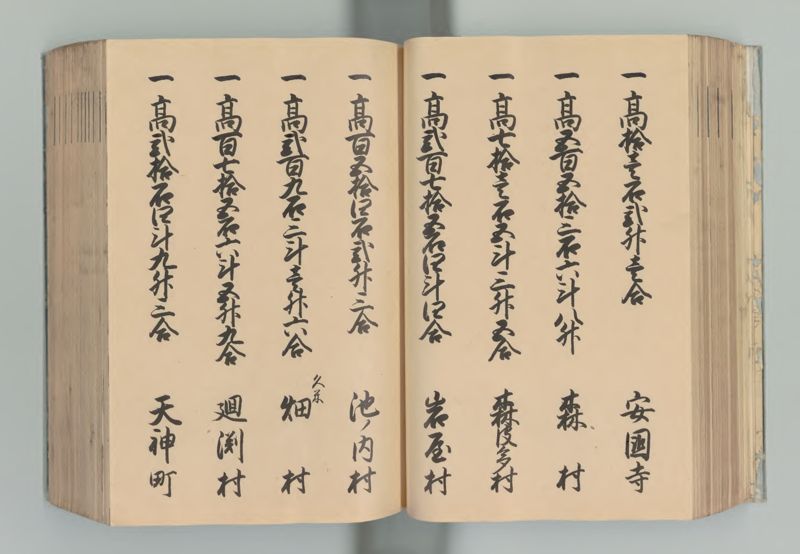 一高拾壱石弐升壱合 安國寺
一高五百五拾三石六斗八升 森村
一高七拾壱石五斗三升五合 森後多村
一高弐百七拾五石四斗四合 岩屋村
一高百五拾四石弐升三合 池ノ内村
一高弐百九石三斗壱升六合 畑村
一高百七拾五石六斗五升九合 廻渕村
一高弐拾石四斗九升三合 天神町